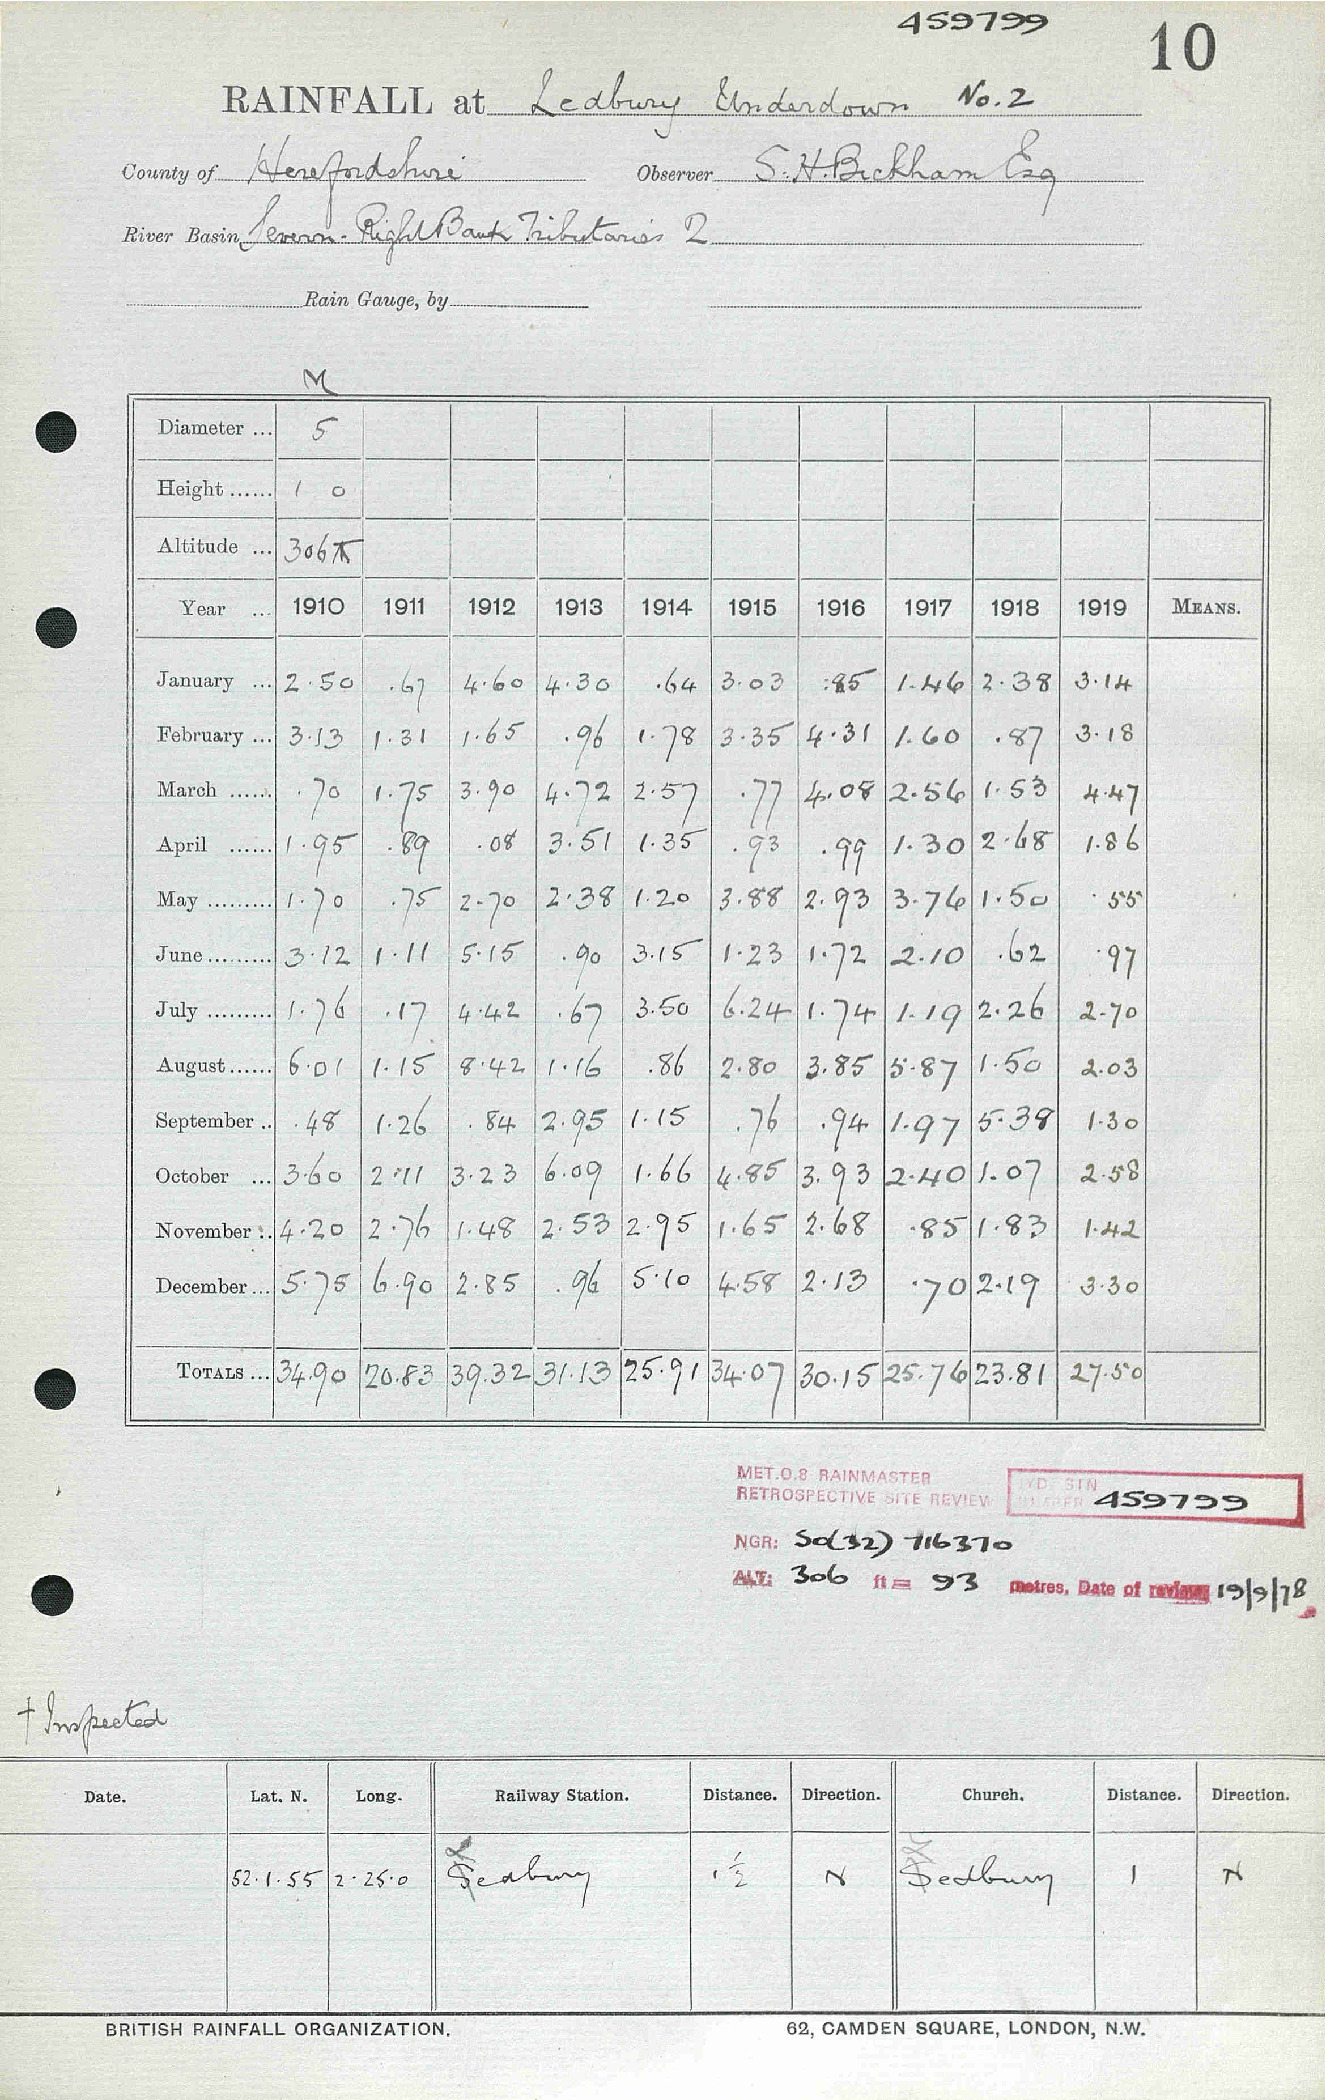 459799
10
RAINFALL at Ledbury Underdown No. 2
County of Herefordshire Observer S. H. Bickham Esq
River Basin Severn - Right Bank Tributaries 2
Rain Gauge, by
M
Diameter ... 5
Height ...... 1 0
Altitude ... 306
Year ... 1910 1911 1912 1913 1914 1915 1916 1917 1918 1919 MEANS.
January ... 2.50 .67 4.60 4.30 .64 3.03 .85 1.46 2.38 3.14
February ... 3.13 1.31 1.65 .96 1.78 3.35 4.31 1.60 .87 3.18
March ...... .70 1.75 3.90 4.72 2.57 .77 4.08 2.56 1.53 4.47
April ...... 1.95 .89 .08 3.51 1.35 .93 .99 1.30 2.68 1.86
May ......... 1.70 .75 2.70 2.38 1.20 3.88 2.93 3.76 1.50 .55
June ......... 3.12 1.11 5.15 .90 3.15 1.23 1.72 2.10 .62 .97
July ......... 1.76 .17 4.42 .67 3.50 6.24 1.74 1.19 2.26 2.70
August ...... 6.01 1.15 8.42 1.16 .86 2.80 3.85 5.87 1.50 2.03
September .. .48 1.26 .84 2.95 1.15 .76 .94 1.97 5.38 1.30
October ... 3.60 2.11 3.23 6.09 1.66 4.85 3.93 2.40 1.07 2.58
November .. 4.20 2.76 1.48 2.53 2.95 1.65 2.68 .85 1.83 1.42
December ... 5.75 6.90 2.85 .96 5.10 4.58 2.13 .70 2.19 3.30
TOTALS ... 34.90 20.83 39.32 31.13 25.91 34.07 30.15 25.76 23.81 27.50
MET.O.8 RAINMASTER
RETROSPECTIVE SITE REVIEW
HYD. STN
NUMBER 459799
NGR: SO(32) 716370
ALT: 306 ft = 93 metres. Date of review 19/9/78
† Inspected
Date. Lat. N. Long. Railway Station. Distance. Direction. Church. Distance. Direction.
52.1.55 2.25.0 Ledbury 1 1/2 N Ledbury 1 N
BRITISH RAINFALL ORGANIZATION. 62, CAMDEN SQUARE, LONDON, N.W.